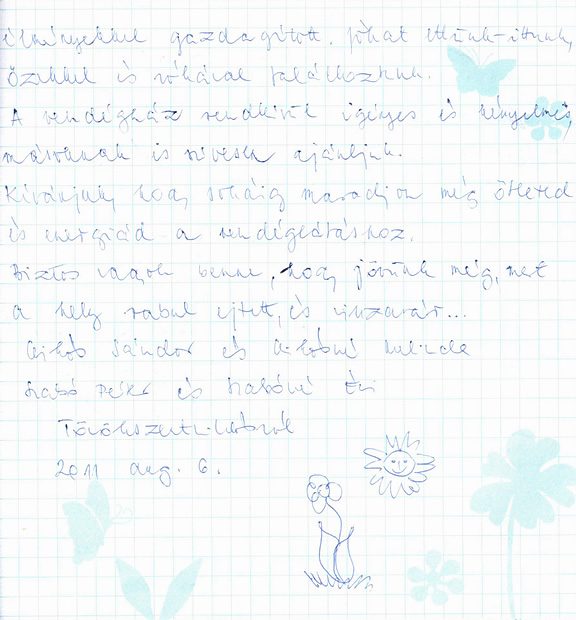 élményekkel gazdagított. Jókat ettünk-ittunk,
őzekkel és rókával találkoztunk.
A vendégház rendkívül igényes és kényelmes,
másoknak is szívesen ajánljuk.
Kívánjuk, hogy sokáig maradjon még ötleted
és energiád a vendéglátáshoz.
Biztos vagyok benne, hogy jövünk még, mert
a hely rabul ejtett, és visszavár...
Sándor és
Szabó Péter és Szabóné Évi
Törökszentmiklósról
2011 aug. 6.